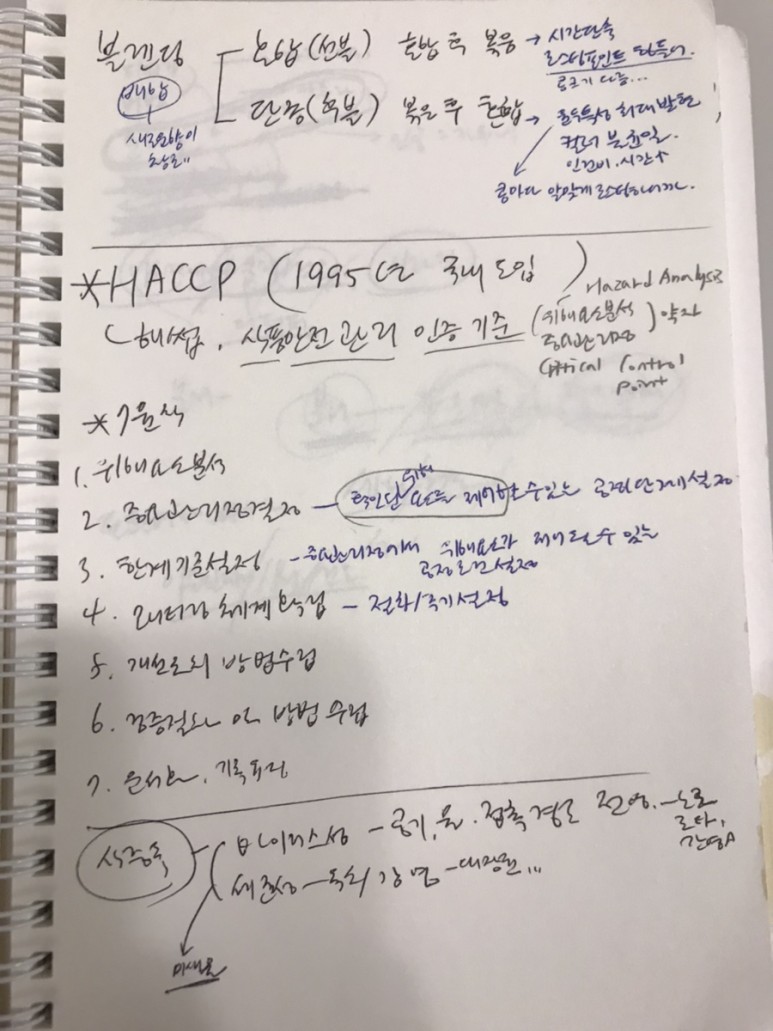 블렌딩
배합
새로운향이
창조..
혼합(선블) 혼합 후 볶음 → 시간단축
로스팅포인트 만들기.
콩크기 다름...
단종(후블) 볶은 후 혼합 → 콩특성 최대 발현
컬러 불균일.
인건비.시간↑
콩마다 알맞게 로스팅하니까.
*HACCP (1995년 국내 도입)
해썹. 식품안전관리 인증기준 (위해요소분석 중요관리점) 약자
Hazard Analysis
Critical Control
Point
*7원칙
1. 위해요소분석
2. 중요관리점결정 - 확인된 위해요소를 제어할 수 있는 공정단계 설정
3. 한계기준설정 - 중요관리점에서 위해요소가 제어될 수 있는
공정조건 설정
4. 모니터링 체계 확립 - 절차/주기설정
5. 개선조치 방법수립
6. 검증절차 및 방법 수립
7. 문서화, 기록유지
식중독
바이러스성 - 공기, 물. 접촉 경로 전염. - 노로
로타,
간염A
세균성 - 독소형 감염 - 대장균...
미생물